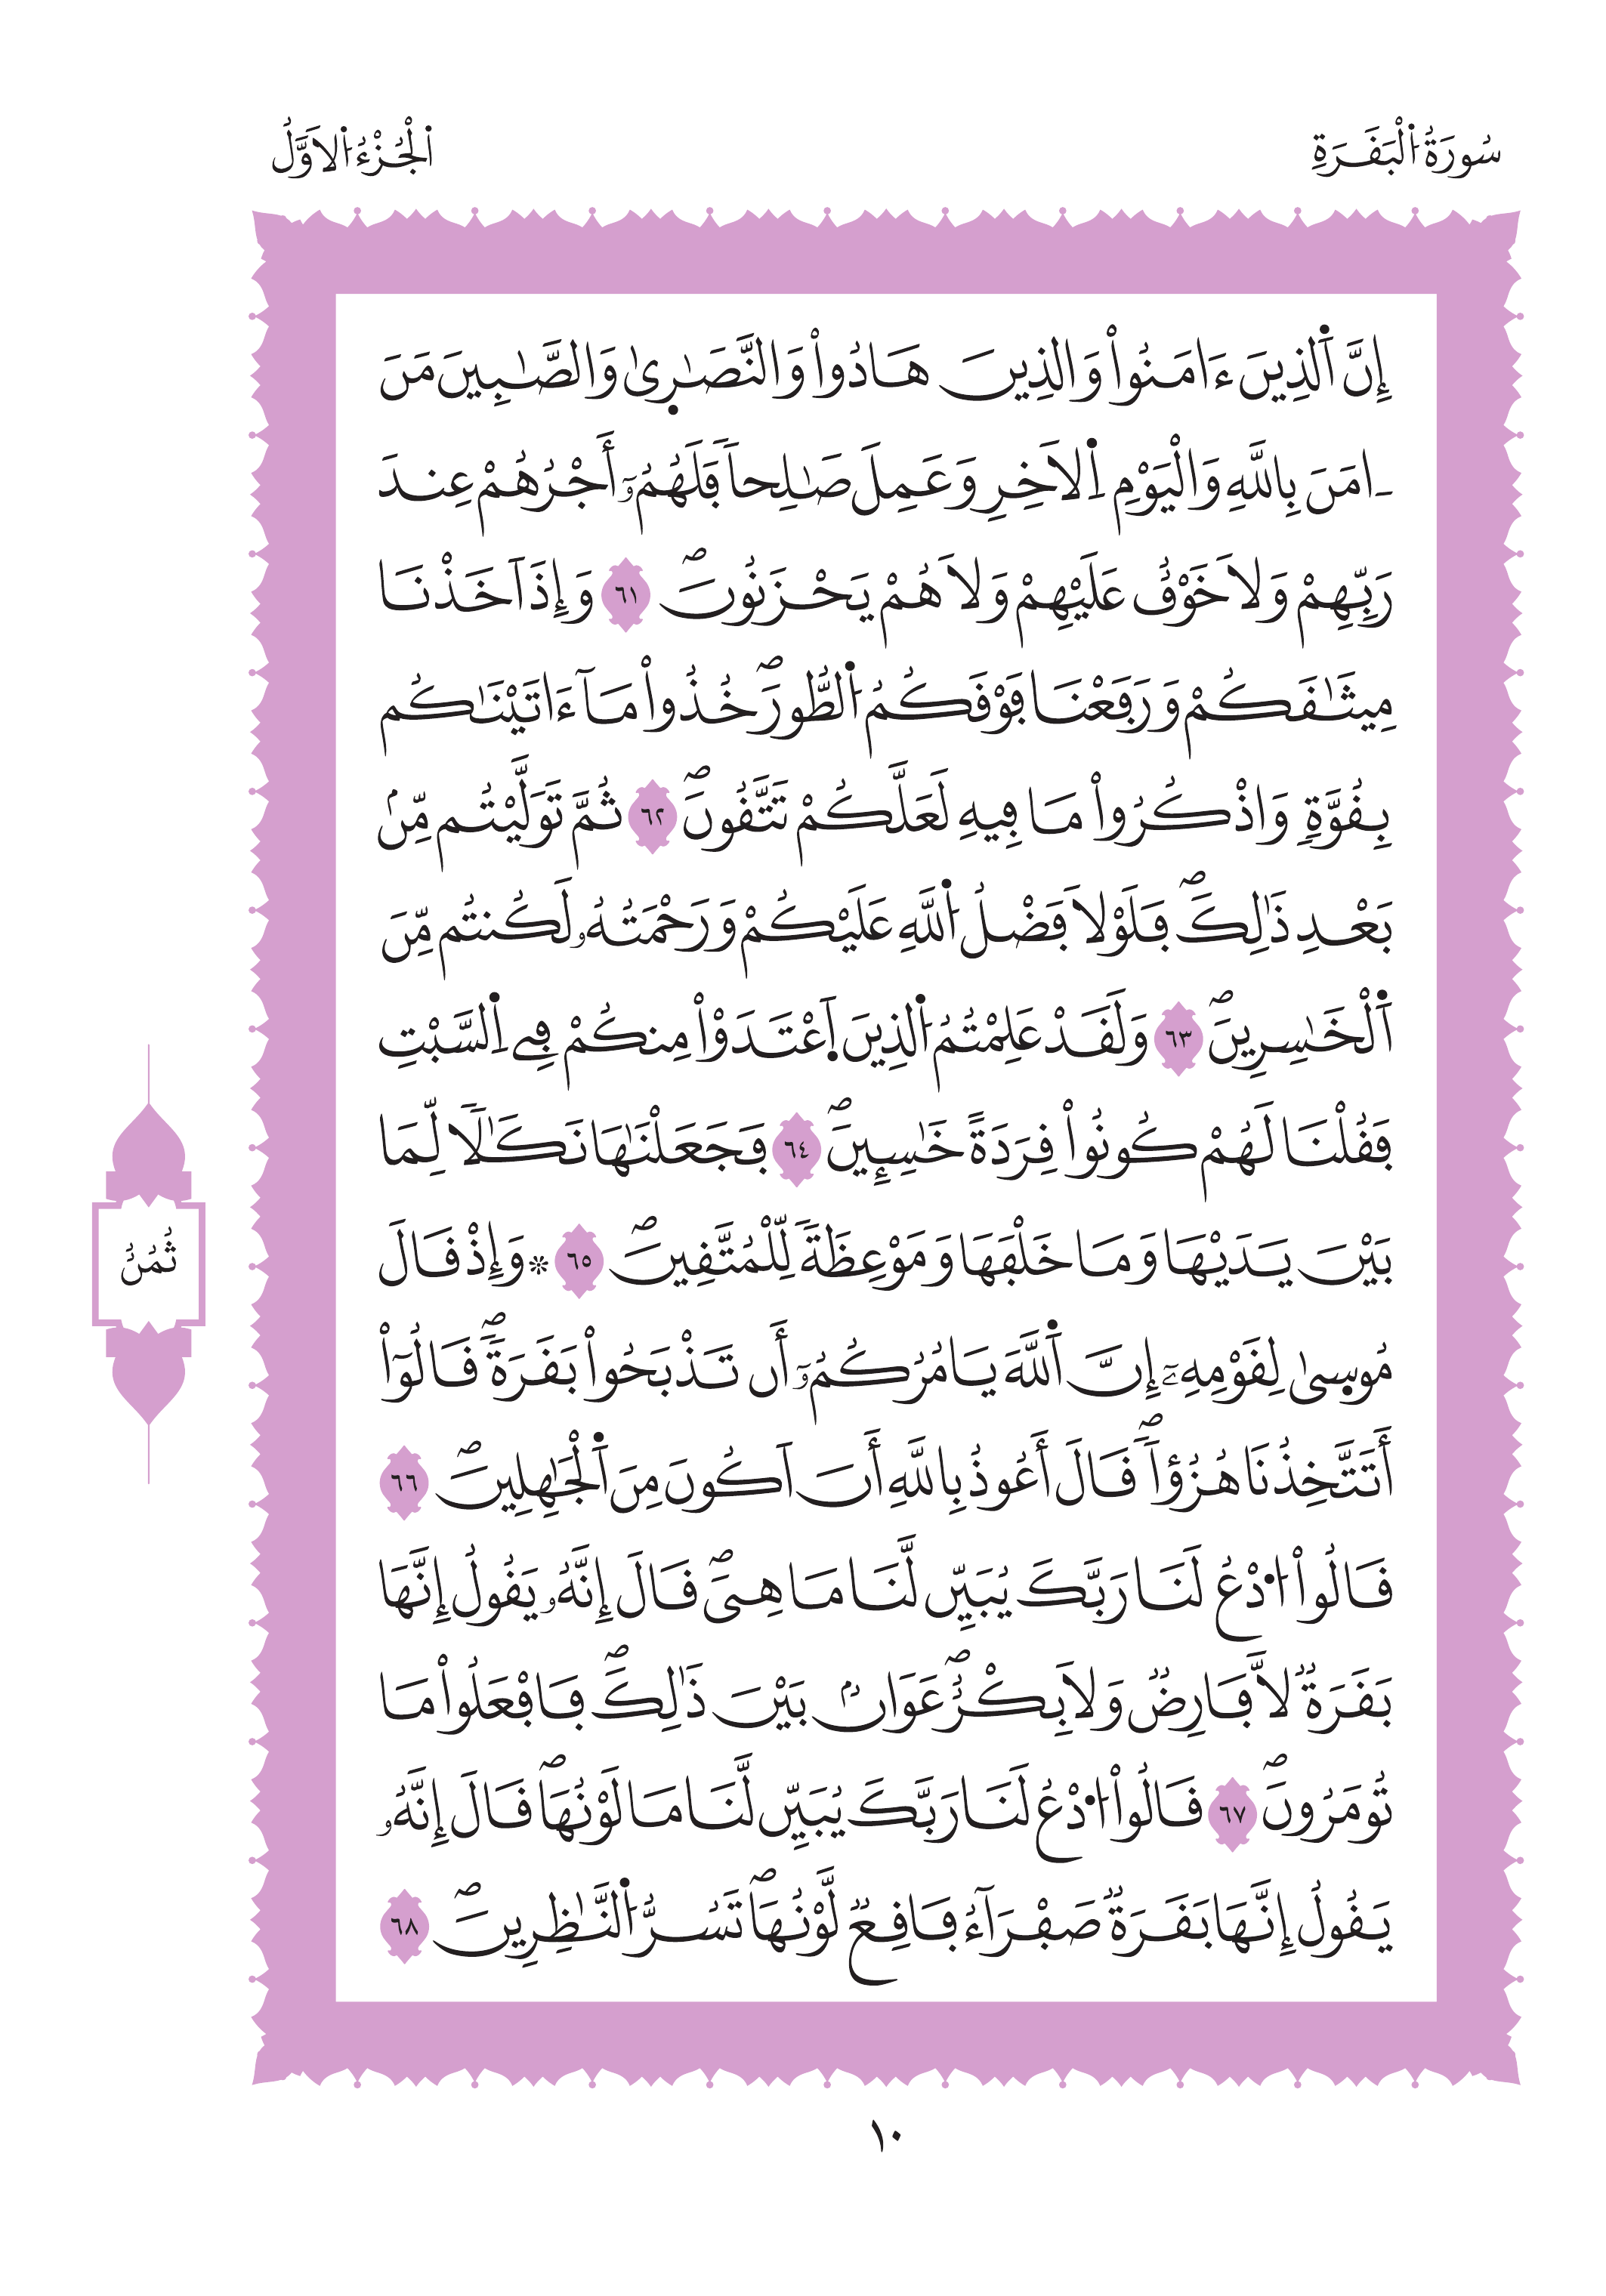 سُورَةُ اُ۬لْبَقَرَةِ
اَ۬لْجُزْءُ اُ۬لَاوَّلُ
إِنَّ اَ۬لذِينَ ءَامَنُواْ وَالذِينَ هَادُواْ وَالنَّصَٰرِىٰ وَالصَّٰبِينَ مَنَ
ـ۬امَنَ بِاللَّهِ وَالْيَوْمِ اِ۬لَاخِرِ وَعَمِلَ صَٰلِحاٗ فَلَهُمُۥٓ أَجْرُهُمْ عِندَ
رَبِّهِمْ وَلَا خَوْفٌ عَلَيْهِمْ وَلَا هُمْ يَحْزَنُونَۖ ٦١ وَإِذَ اَخَذْنَا
مِيثَٰقَكُمْ وَرَفَعْنَا فَوْقَكُمُ اُ۬لطُّورَۖ خُذُواْ مَآ ءَاتَيْنَٰكُم
بِقُوَّةٖ وَاذْكُرُواْ مَا فِيهِ لَعَلَّكُمْ تَتَّقُونَۖ ٦٢ ثُمَّ تَوَلَّيْتُم مِّنۢ
بَعْدِ ذَٰلِكَۖ فَلَوْلَا فَضْلُ اُ۬للَّهِ عَلَيْكُمْ وَرَحْمَتُهُۥ لَكُنتُم مِّنَ
اَ۬لْخَٰسِرِينَۖ ٦٣ وَلَقَدْ عَلِمْتُمُ اُ۬لذِينَ اَ۪عْتَدَوْاْ مِنكُمْ فِے اِ۬لسَّبْتِ
فَقُلْنَا لَهُمْ كُونُواْ قِرَدَةً خَٰسِـِٕينَۖ ٦٤ فَجَعَلْنَٰهَا نَكَٰلاٗ لِّمَا
بَيْنَ يَدَيْهَا وَمَا خَلْفَهَا وَمَوْعِظَةٗ لِّلْمُتَّقِينَۖ ٦٥ ۞ وَإِذْ قَالَ
مُوسِىٰ لِقَوْمِهِۦٓ إِنَّ اَ۬للَّهَ يَامُرُكُمُۥٓ أَن تَذْبَحُواْ بَقَرَةٗۖ قَالُوٓاْ
أَتَتَّخِذُنَا هُزُؤاٗۖ قَالَ أَعُوذُ بِاللَّهِ أَنَ اَكُونَ مِنَ اَ۬لْجَٰهِلِينَۖ ٦٦
قَالُواْ اُ۟دْعُ لَنَا رَبَّكَ يُبَيِّن لَّنَا مَا هِيَۖ قَالَ إِنَّهُۥ يَقُولُ إِنَّهَا
بَقَرَةٞ لَّا فَارِضٞ وَلَا بِكْرٌۖ عَوَانُۢ بَيْنَ ذَٰلِكَۖ فَافْعَلُواْ مَا
تُومَرُونَۖ ٦٧ قَالُواْ اُ۟دْعُ لَنَا رَبَّكَ يُبَيِّن لَّنَا مَا لَوْنُهَاۖ قَالَ إِنَّهُۥ
يَقُولُ إِنَّهَا بَقَرَةٞ صَفْرَآءُ فَاقِعٞ لَّوْنُهَاۖ تَسُرُّ اُ۬لنَّٰظِرِينَۖ ٦٨
ثُمُنُ
١٠